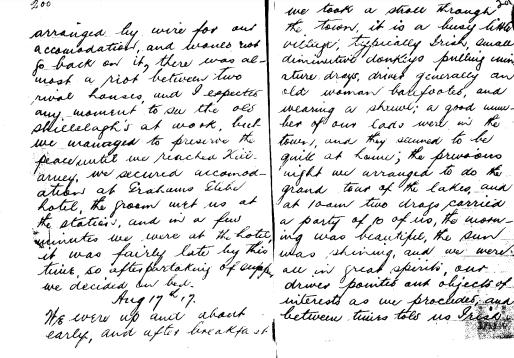 200
arranged by wire for our
accomodation, and would not
go back on it, there was al-
most a riot between two
rival houses, and I expected
any moment to see the old
shillelagh's at work, but
we managed to preserve the
peace until we reached Kill-
arney, we secured accomod-
ation at Grahams Glebe
hotel, the groom met us at
the station, and in a few
minutes we were at the hotel,
it was fairly late by this
time, so after partaking of supper
we decided on bed.
Aug 17th 17.
We were up and about
early, and after breakfast
we took a stroll through
the town, it is a busy little
village, typically Irish, small
diminutive donkeys pulling min
ature drays, driver generally an
old woman barefooted, and
wearing a shawl; a good num-
ber of our lads were in the
town, and they seemed to be
quite at home; the previous
night we arranged to do the
grand tour of the lakes, and
at 10am two drags carried
a party of 10 of us, the morn-
ing was beautiful, the sun
was shining, and we were
all in great spirits, our
driver pointed out objects of
interests as we proceded, and
between times told us Irish